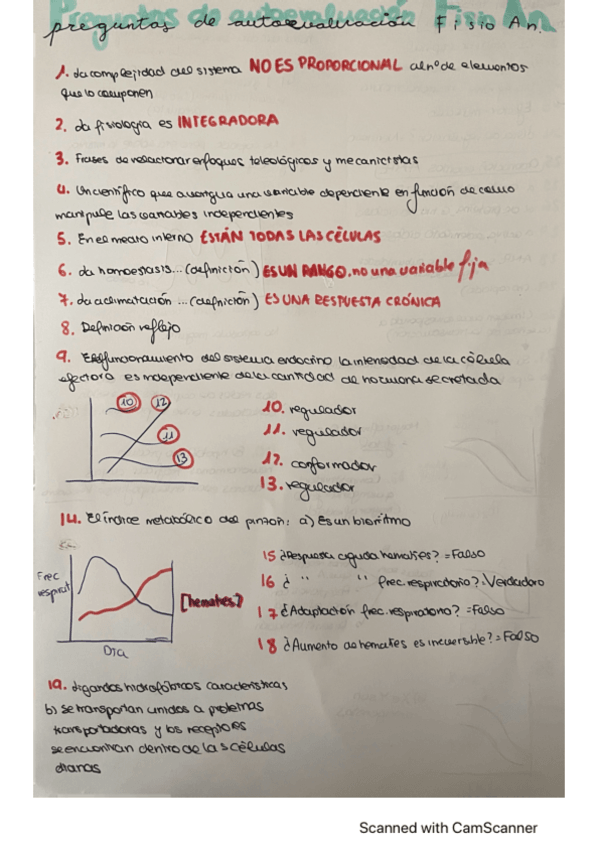 Preguntas de autoevaluación Fisio An.
preguntas de autoevaluación Fisio An.
1. La complejidad del sistema NO ES PROPORCIONAL al nº de elementos
que lo componen
2. La fisiología es INTEGRADORA
3. Frases de relacionar enfoques teleológicos y mecanicistas
4. Un científico que averigua una variable dependiente en función de como
manipule las variables independientes
5. En el medio interno ESTÁN TODAS LAS CÉLULAS
6. La homeostasis... (definición) ES UN RANGO, no una variable fija
7. La aclimatación ... (definición) ES UNA RESPUESTA CRÓNICA
8. Definición reflejo
9. El funcionamiento del sistema endocrino la intensidad de la célula
efectora es independiente de la cantidad de hormona secretada
10 12
11
13
10. regulador
11. regulador
12. conformador
13. regulador
14. El índice metabólico del pinzón: a) Es un bioritmo
Frec
respirat
[hematíes]
Día
15 ¿Respuesta aguda hematíes? = Falso
16 ¿ " " frec. respiratorio?: Verdadero
17 ¿Adaptación frec. respiratorio? = Falso
18 ¿Aumento de hematíes es irreversible? = Falso
19. Ligandos hidrofóbicos características
b) se transportan unidos a proteínas
transportadoras y los receptores
se encuentran dentro de las células
dianas
Scanned with CamScanner